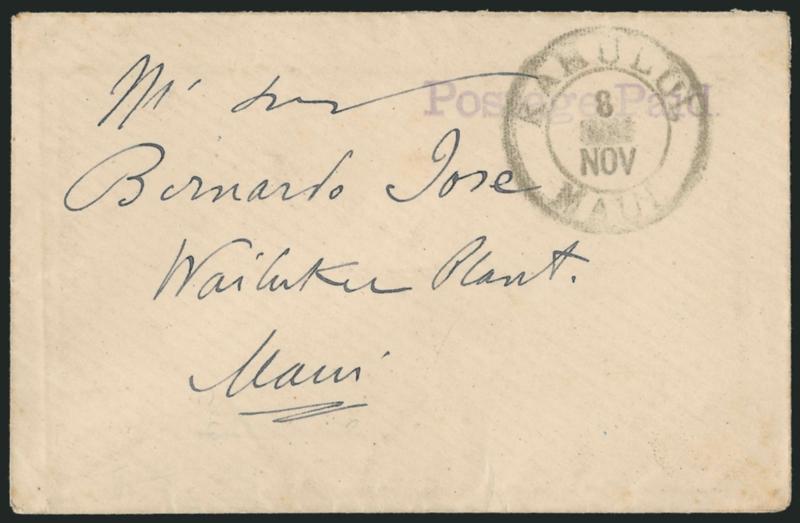 Postage Paid.
KAHULUI
8
NOV
MAUI
Mr
Bernardo Jose
Wailuku Plant.
Maui